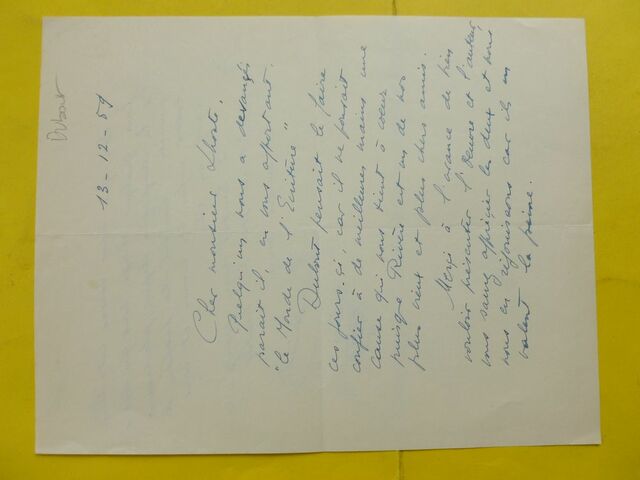 Dubout
13-12-59
Cher monsieur Lhoste,
Quelqu'un nous a devancés
paraît il, en vous apportant
"le Monde de l'Ecriture"
Dubout pensait le faire
ces jours-ci, car il ne pouvait
confier à de meilleures mains une
cause qui nous tient à cœur
puisque Rivère est un de nos
plus vieux et plus chers amis.
Merci à l'avance de bien
vouloir présenter l'œuvre et l'auteur,
vous saurez apprécier les deux et nous
nous en réjouissons car ils en
valent la peine.